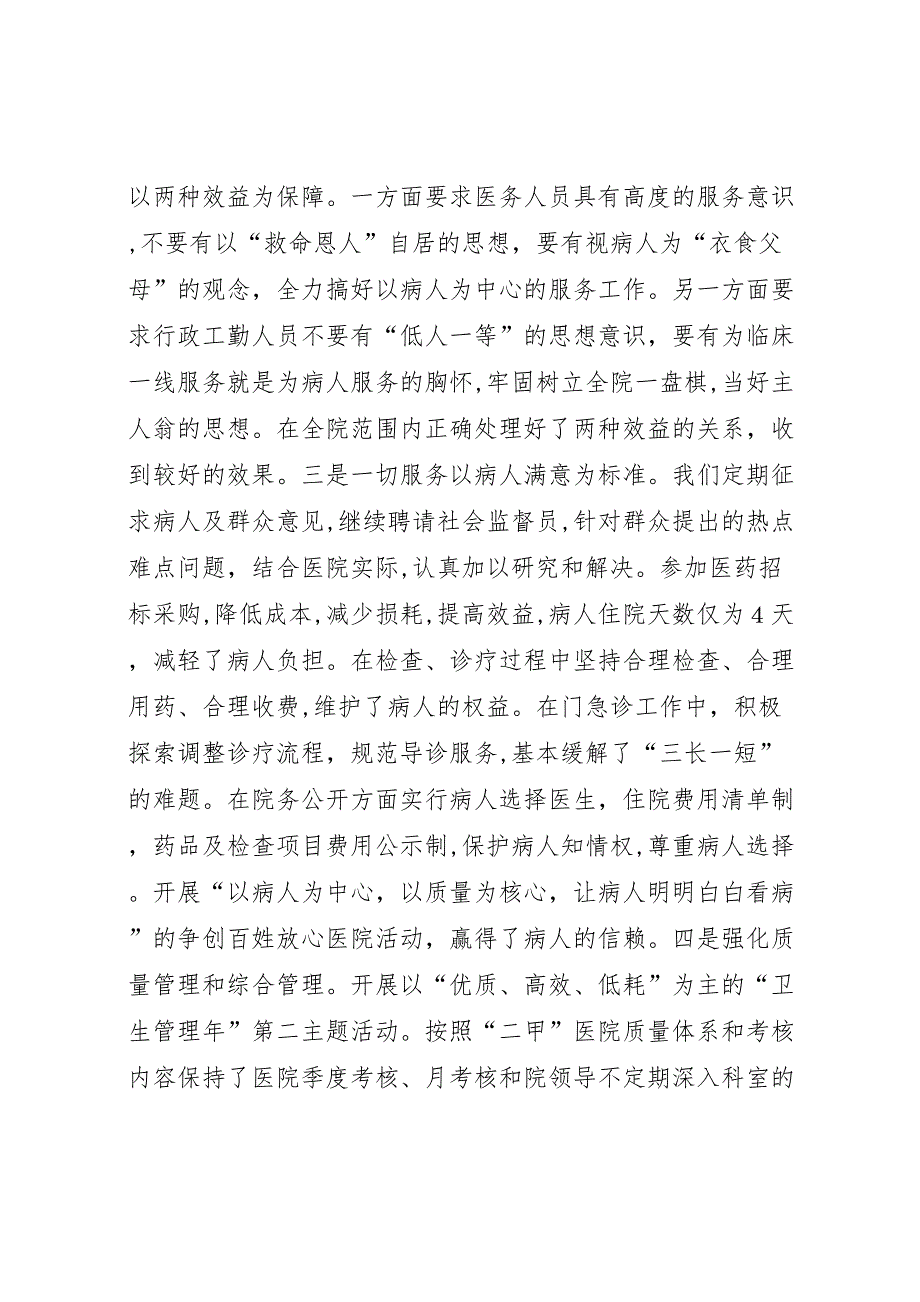 以两种效益为保障。一方面要求医务人员具有高度的服务意识
,不要有以“救命恩人”自居的思想，要有视病人为“衣食父
母”的观念，全力搞好以病人为中心的服务工作。另一方面要
求行政工勤人员不要有“低人一等”的思想意识，要有为临床
一线服务就是为病人服务的胸怀,牢固树立全院一盘棋,当好主
人翁的思想。在全院范围内正确处理好了两种效益的关系，收
到较好的效果。三是一切服务以病人满意为标准。我们定期征
求病人及群众意见,继续聘请社会监督员,针对群众提出的热点
难点问题，结合医院实际,认真加以研究和解决。参加医药招
标采购,降低成本,减少损耗,提高效益,病人住院天数仅为4天
，减轻了病人负担。在检查、诊疗过程中坚持合理检查、合理
用药、合理收费,维护了病人的权益。在门急诊工作中，积极
探索调整诊疗流程，规范导诊服务,基本缓解了“三长一短”
的难题。在院务公开方面实行病人选择医生，住院费用清单制
，药品及检查项目费用公示制,保护病人知情权,尊重病人选择
。开展“以病人为中心，以质量为核心，让病人明明白白看病
”的争创百姓放心医院活动，赢得了病人的信赖。四是强化质
量管理和综合管理。开展以“优质、高效、低耗”为主的“卫
生管理年”第二主题活动。按照“二甲”医院质量体系和考核
内容保持了医院季度考核、月考核和院领导不定期深入科室的